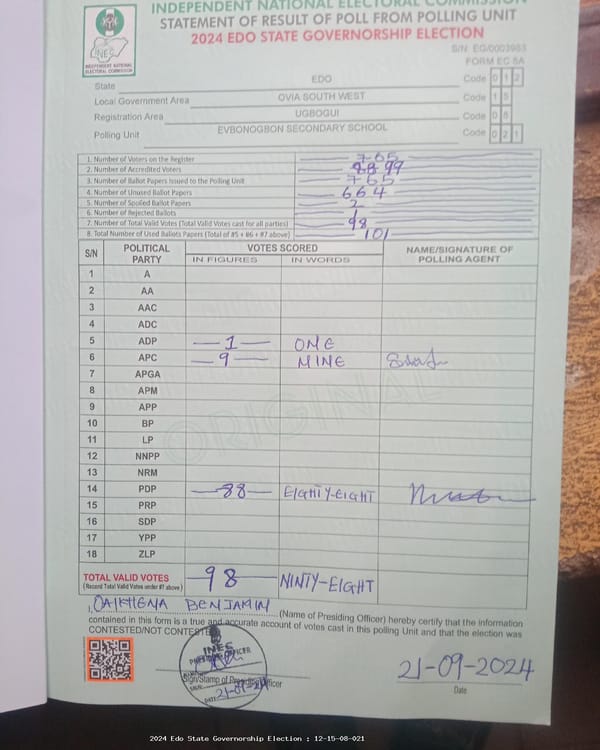 INDEPENDENT NATIONAL ELECTORAL COMMISSION
STATEMENT OF RESULT OF POLL FROM POLLING UNIT
2024 EDO STATE GOVERNORSHIP ELECTION
INEC
INDEPENDENT NATIONAL ELECTORAL COMMISSION
S/N: EG/0003983
FORM EC 8A
State EDO Code 0 1 2
Local Government Area OVIA SOUTH WEST Code 1 5
Registration Area UGBOGUI Code 0 8
Polling Unit EVBONOGBON SECONDARY SCHOOL Code 0 2 1
1. Number of Voters on the Register 765
2. Number of Accredited Voters 99
3. Number of Ballot Papers Issued to the Polling Unit 765
4. Number of Unused Ballot Papers 664
5. Number of Spoiled Ballot Papers 2
6. Number of Rejected Ballots 1
7. Number of Total Valid Votes (Total Valid Votes cast for all parties) 98
8. Total Number of Used Ballots Papers (Total of #5 + #6 + #7 above) 101
S/N POLITICAL PARTY VOTES SCORED NAME/SIGNATURE OF POLLING AGENT
IN FIGURES IN WORDS
1 A
2 AA
3 AAC
4 ADC
5 ADP 1 ONE
6 APC 9 NINE
7 APGA
8 APM
9 APP
10 BP
11 LP
12 NNPP
13 NRM
14 PDP 88 EIGHTY-EIGHT
15 PRP
16 SDP
17 YPP
18 ZLP
ORIGINAL
TOTAL VALID VOTES 98 NINTY-EIGHT
(Record Total Valid Votes under #7 above)
I, OAIKHENA BENJAMIN (Name of Presiding Officer) hereby certify that the information
contained in this form is a true and accurate account of votes cast in this polling Unit and that the election was
CONTESTED/NOT CONTESTED
INEC
PRESIDING OFFICER
Sign/Stamp of Presiding Officer
DATE: 21-09-24
21-09-2024
Date
2024 Edo State Governorship Election : 12-15-08-021